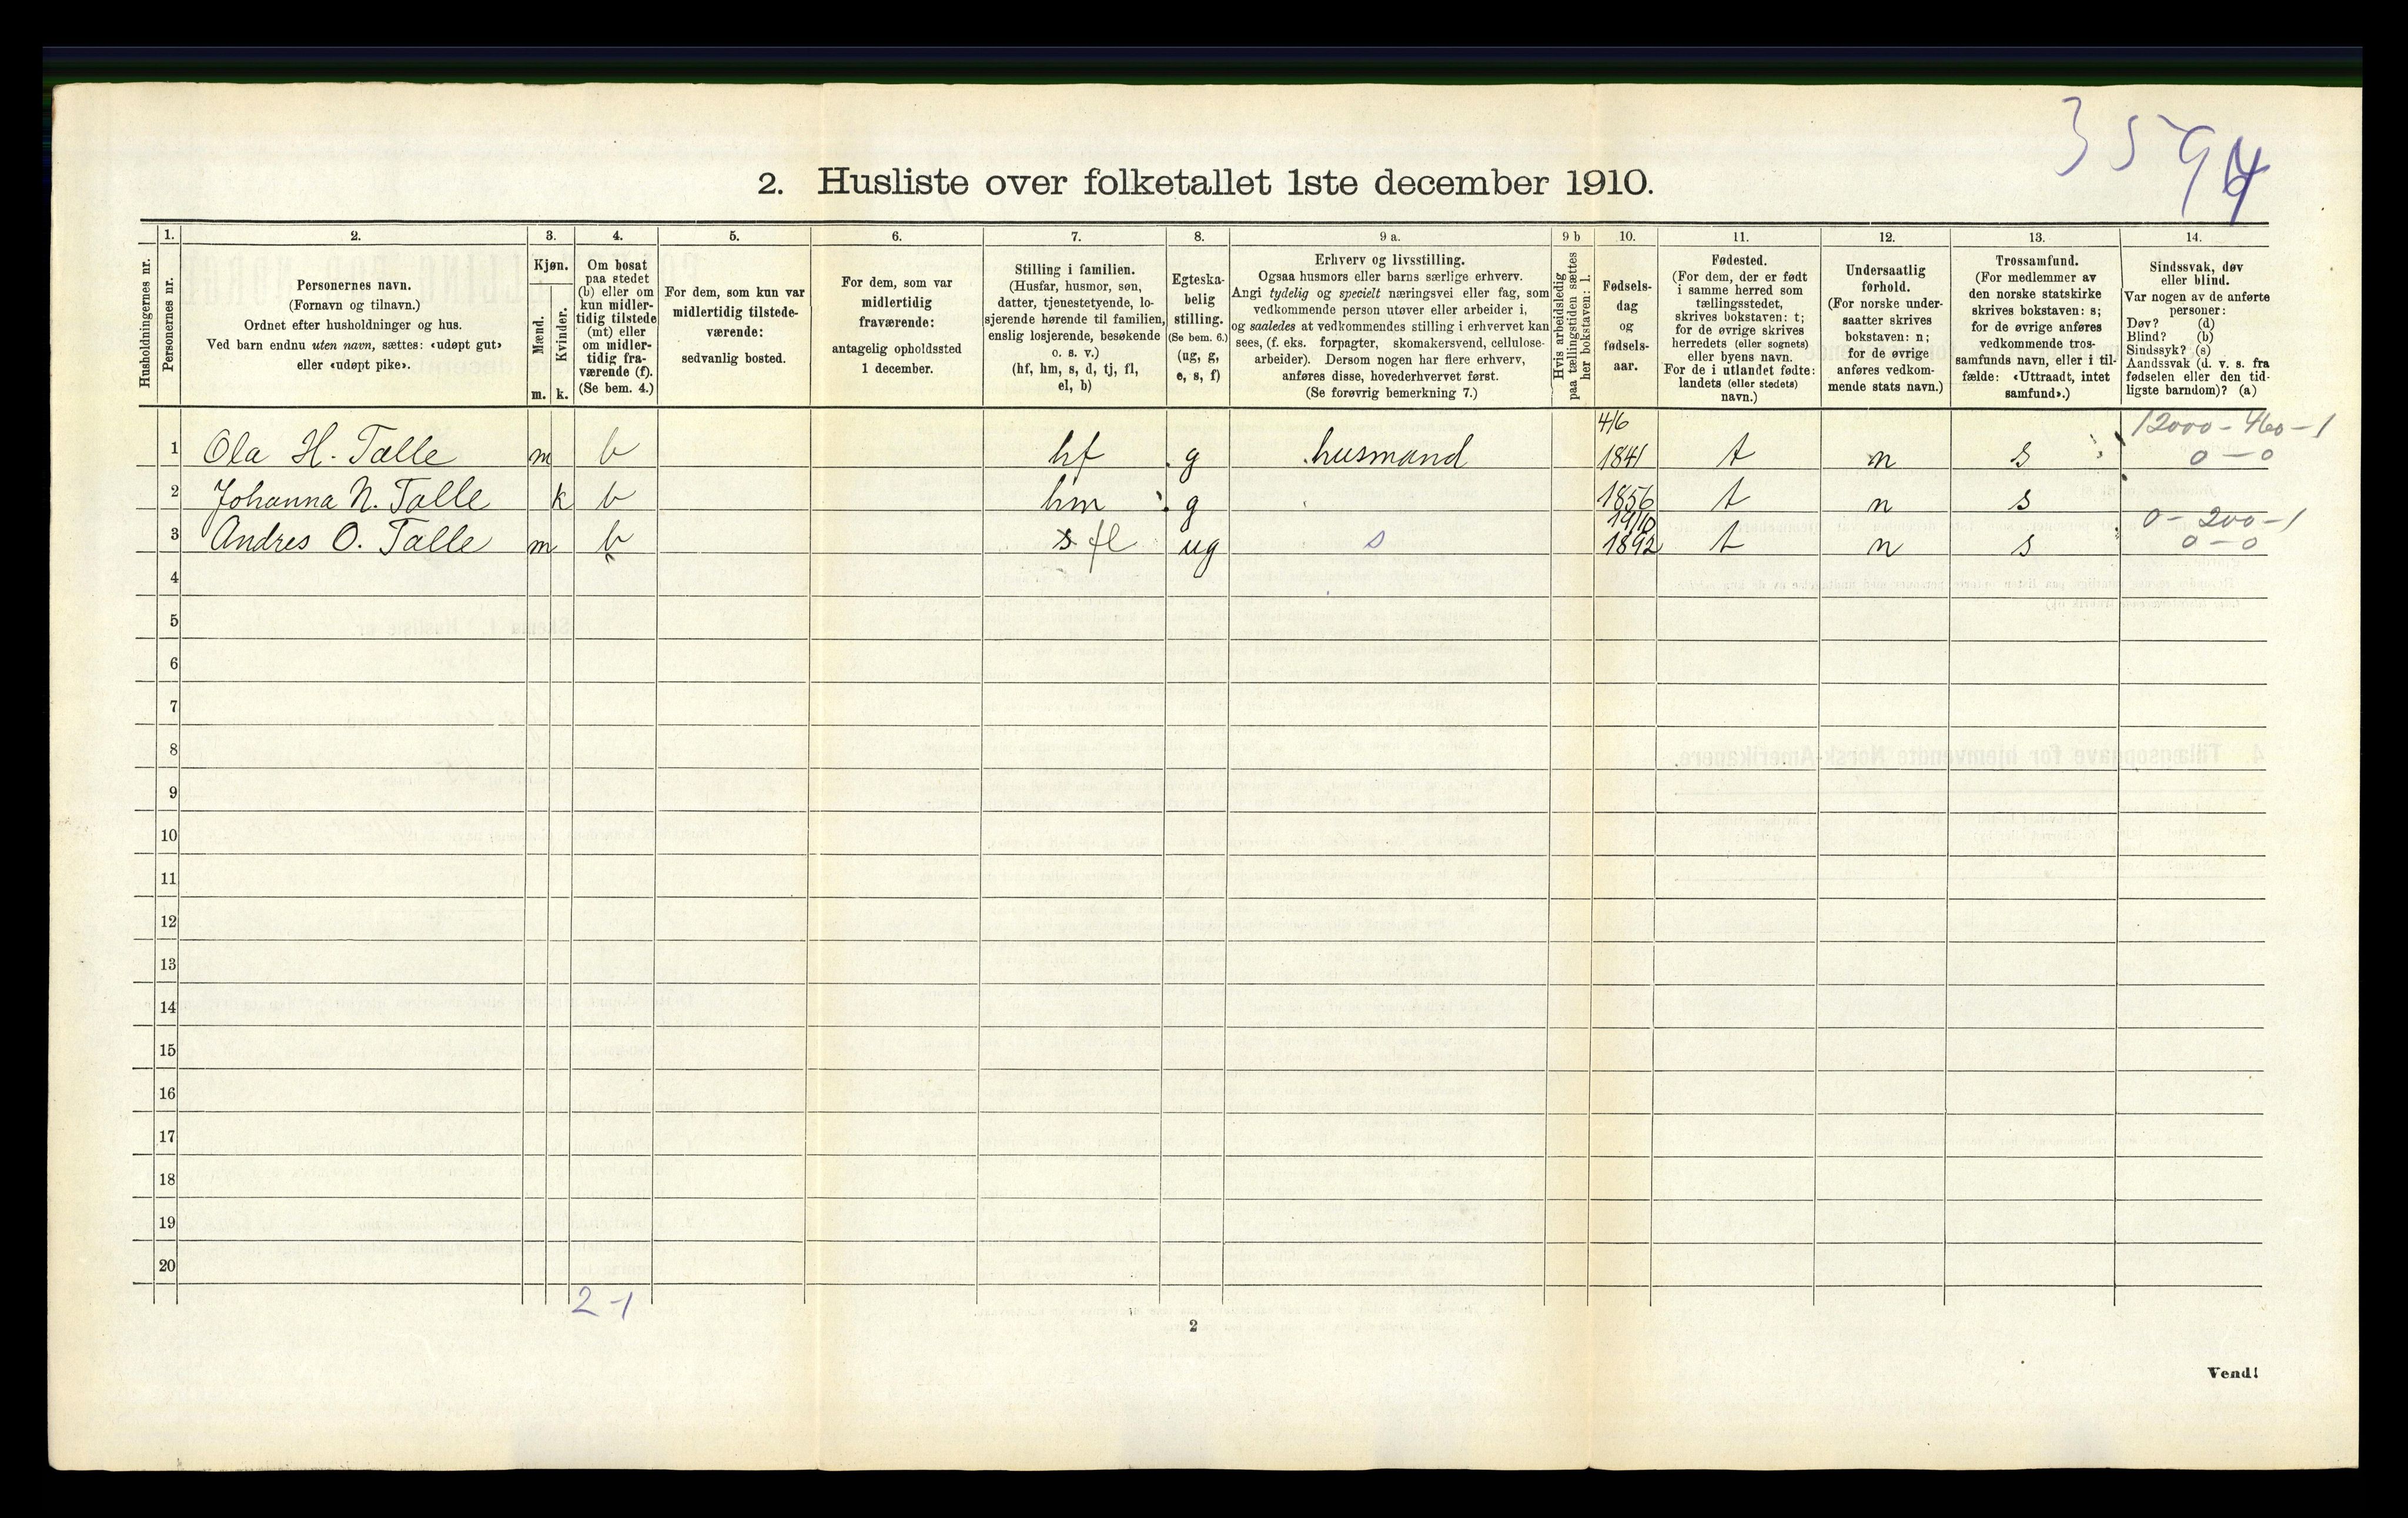 3594
2. Husliste over folketallet 1ste december 1910.
Husholdningernes nr.
1.
Personernes nr.
2.
Personernes navn.
(Fornavn og tilnavn.)
Ordnet efter husholdninger og hus.
Ved barn endnu uten navn, sættes: «udøpt gut»
eller «udøpt pike».
3.
Kjøn.
Mænd.
Kvinder.
m. k.
4.
Om bosat
paa stedet
(b) eller om
kun midler-
tidig tilstede
(mt) eller
om midler-
tidig fra-
værende (f).
(Se bem. 4.)
5.
For dem, som kun var
midlertidig tilstede-
værende:
sedvanlig bosted.
6.
For dem, som var
midlertidig
fraværende:
antagelig opholdssted
1 december.
7.
Stilling i familien.
(Husfar, husmor, søn,
datter, tjenestetyende, lo-
sjerende hørende til familien,
enslig losjerende, besøkende
o. s. v.)
(hf, hm, s, d, tj, fl,
el, b)
8.
Egteska-
belig
stilling.
(Se bem. 6.)
(ug, g,
e, s, f)
9 a.
Erhverv og livsstilling.
Ogsaa husmors eller barns særlige erhverv.
Angi tydelig og specielt næringsvei eller fag, som
vedkommende person utøver eller arbeider i,
og saaledes at vedkommendes stilling i erhvervet kan
sees, (f. eks. forpagter, skomakersvend, cellulose-
arbeider). Dersom nogen har flere erhverv,
anføres disse, hovederhvervet først.
(Se forøvrig bemerkning 7.)
9 b
Hvis arbeidsledig
paa tællingstiden sættes
her bokstaven: l.
10.
Fødsels-
dag
og
fødsels-
aar.
11.
Fødested.
(For dem, der er født
i samme herred som
tællingsstedet,
skrives bokstaven: t;
for de øvrige skrives
herredets (eller sognets)
eller byens navn.
For de i utlandet fødte:
landets (eller stedets)
navn.)
12.
Undersaatlig
forhold.
(For norske under-
saatter skrives
bokstaven: n;
for de øvrige
anføres vedkom-
mende stats navn.)
13.
Trossamfund.
(For medlemmer av
den norske statskirke
skrives bokstaven: s;
for de øvrige anføres
vedkommende tros-
samfunds navn, eller i til-
fælde: «Uttraadt, intet
samfund».)
14.
Sindssvak, døv
eller blind.
Var nogen av de anførte
personer:
Døv? (d)
Blind? (b)
Sindssyk? (s)
Aandssvak (d. v. s. fra
fødselen eller den tid-
ligste barndom)? (a)
4/6 12000 - 460 - 1
1 Ola H. Talle m b hf g husmand 1841 t n s 0 - 0
2 Johanna N. Talle k b hm g 1856 t n s
19/10 0 - 200 - 1
3 Andres O. Talle m b s fl ug s 1892 t n s 0 - 0
4
5
6
7
8
9
10
11
12
13
14
15
16
17
18
19
20
2 - 1
2
Vend!